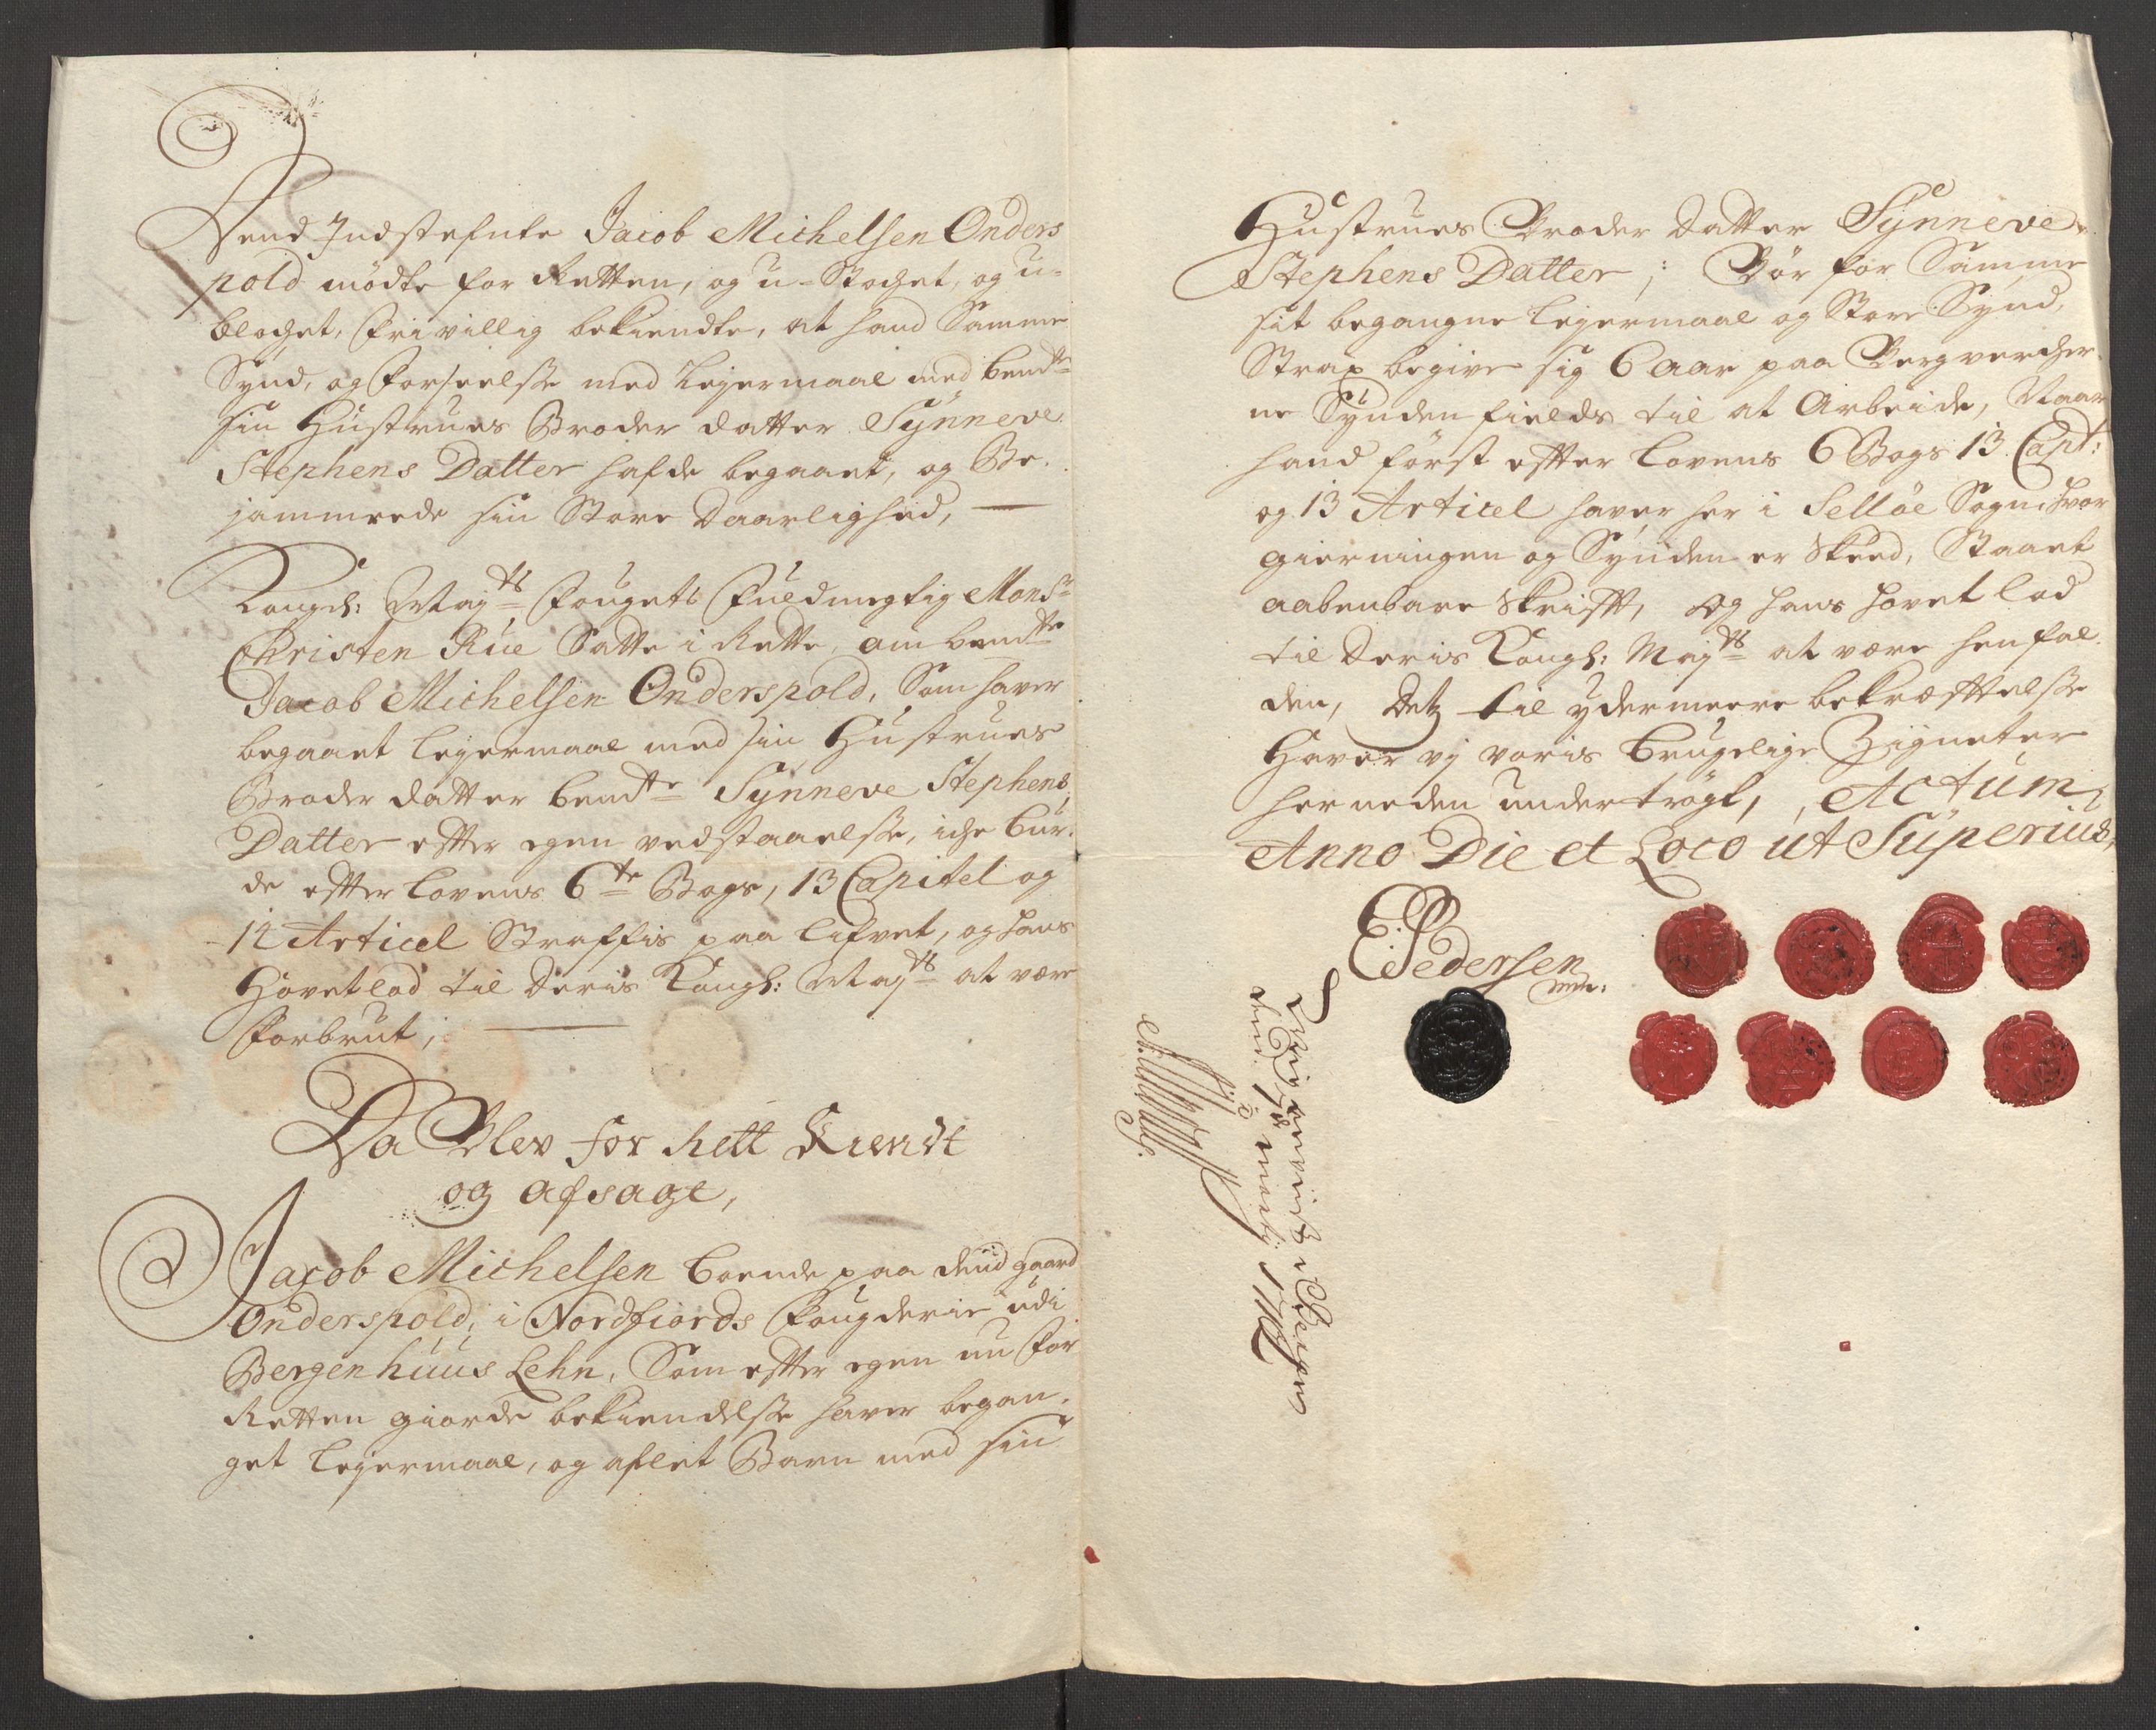 Dend Indstefnte Jacob Michelsen Onders
pold mödte for Retten, og u-Stochet, og u-
blochet, frivillig bekiendte, at hand Samme
Synd, og forseelsse med Leyermaal med bemdte
sin Hustrues Broder datter Synneve
Stephens Datter hafde begaaet, og Be-
jammerede sin Store Daarlighed,
Kongel: Maÿts fougets fuldmegtig Monsr
Christen Rüe Satte i Rette, om bemdte
Jacob Michelsen Onderspold, Som haver
begaaet leyermaal med sin Hustrues
Broder datter bemdte Synneve Stephens
Datter efter egen vedstaaelsse, iche bur-
de efter lovens 6te Bogs, 13 Capitel og
14 Articel Straffis paa lifvet, og hans
Hovetlod til Deris Kongl: Mayts at være
forbrut;
Da Blev for Rett Kiendt
og afsagt,
Jacob Michelsen boende paa dend gaard
Onderspold, i Nordfiords fougderie udi
Bergenhuus Lehn, Som efter egen nu for
Retten giorde bekiendelsse haver began-
get leyermaal, og aflet Barn med sin
Hustrues Broder Datter Synneve
Stephens Datter; Bör for Samme
sit begangne leyermaal og Store Synd,
Strax begive sig 6 aar paa Bergvercher-
ne Synden fields til at Arbeide, Naar
hand först efter lovens 6 Bogs 13 Capt:
og 13 Articel haver her i Sellöe Sogn, hvor
gierningen og Synden er Skeed, Staaet
aabenbare Skrifft, Og hans hovet lod
til Deris Kongl: Mayts at være henfal-
den, Detz til ydermeere bekræfftelsse
Haver vj voris brugelige Zigneter
her neden undertrögt, Actum
Anno Die et Loco ut Superius,
E Pedersen
mp.
Bergen
den 1712